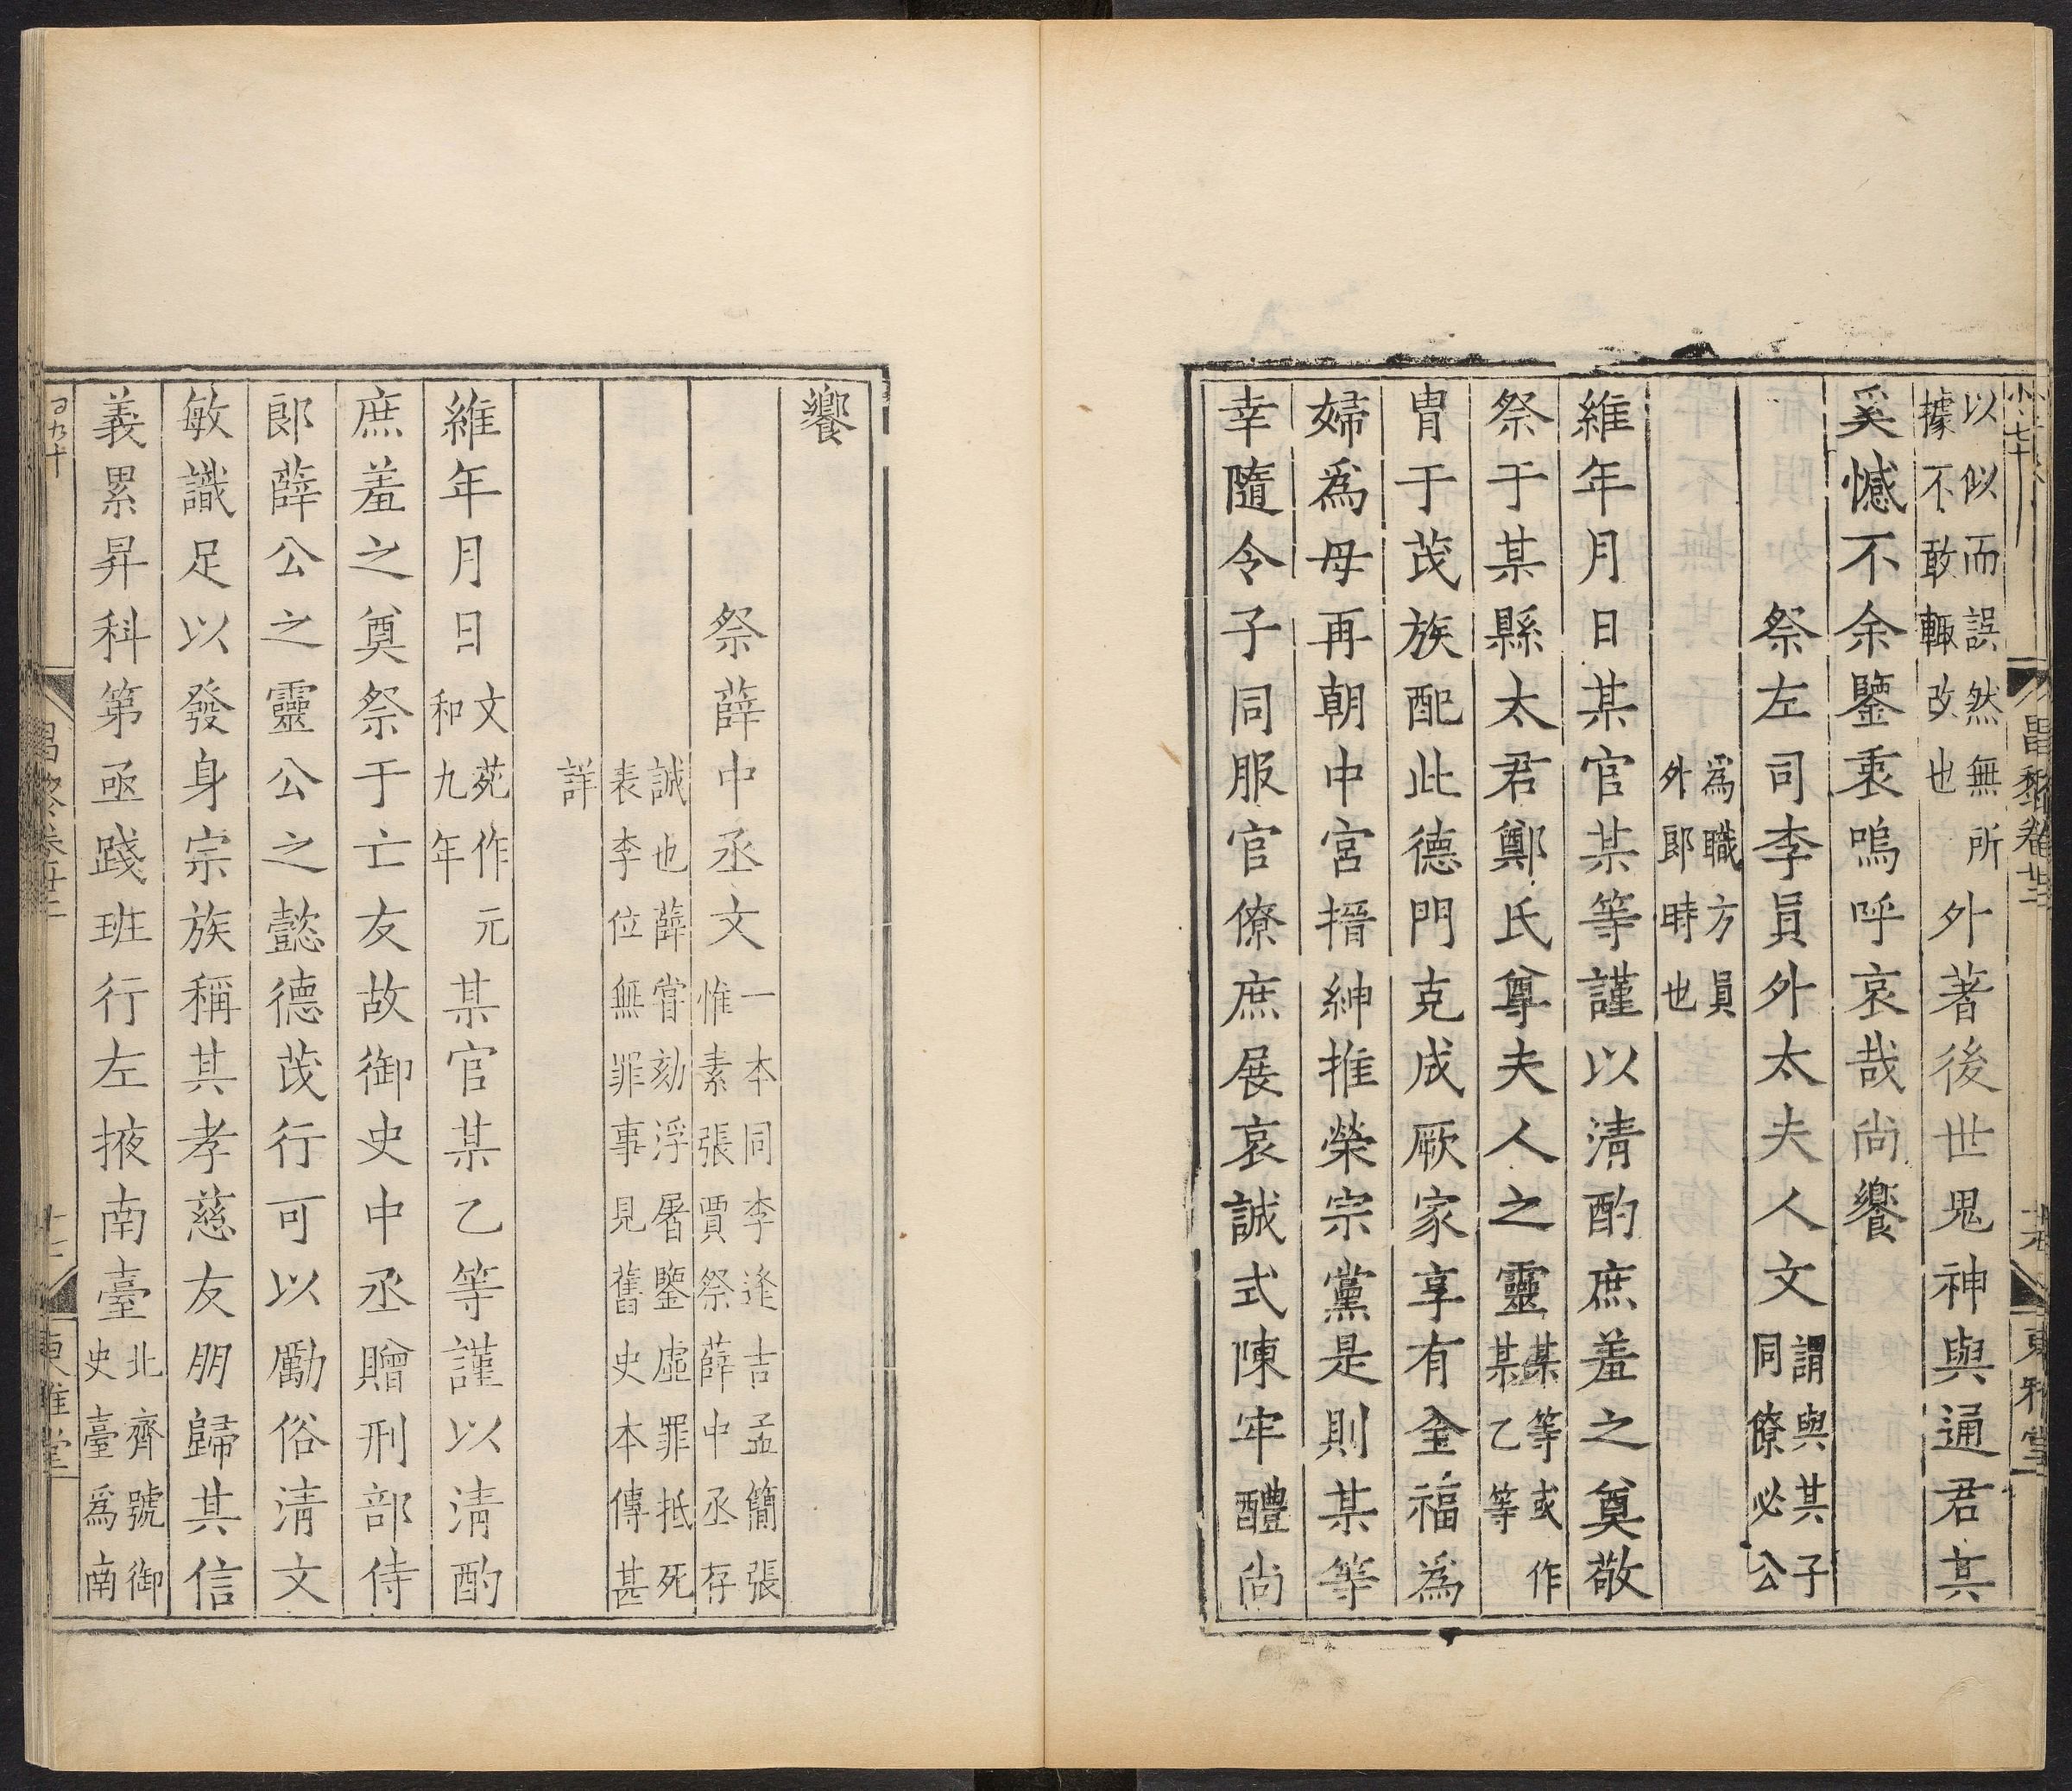 以似而誤然無所據不敢輒改也外著後世鬼神與通君其
奚憾不余鑒衷嗚呼哀哉尚饗
祭左司李員外太夫人文謂與其子同僚必公
爲職方員外郎時也
維年月日某官某等謹以清酌庶羞之奠敬
祭于某縣太君鄭氏尊夫人之靈某等或作某乙等
冑于茂族配此德門克成厥家享有全福爲
婦爲母再朝中宮搢紳推榮宗黨是則某等
幸隨令子同服官僚庶展哀誠式陳牢醴尚
饗
祭薛中丞文一本同李逢吉孟簡張惟素張賈祭薛中丞存
誠也薛嘗劾浮屠鑒虛罪抵死表李位無罪事見舊史本傳甚
詳
維年月日文苑作元和九年某官某乙等謹以清酌
庶羞之奠祭于亡友故御史中丞贈刑部侍
郎薛公之靈公之懿德茂行可以勵俗清文
敏識足以發身宗族稱其孝慈友朋歸其信
義累昇科第亟踐班行左掖南臺北齊號御史臺爲南
昌黎卷廿三
東雅堂